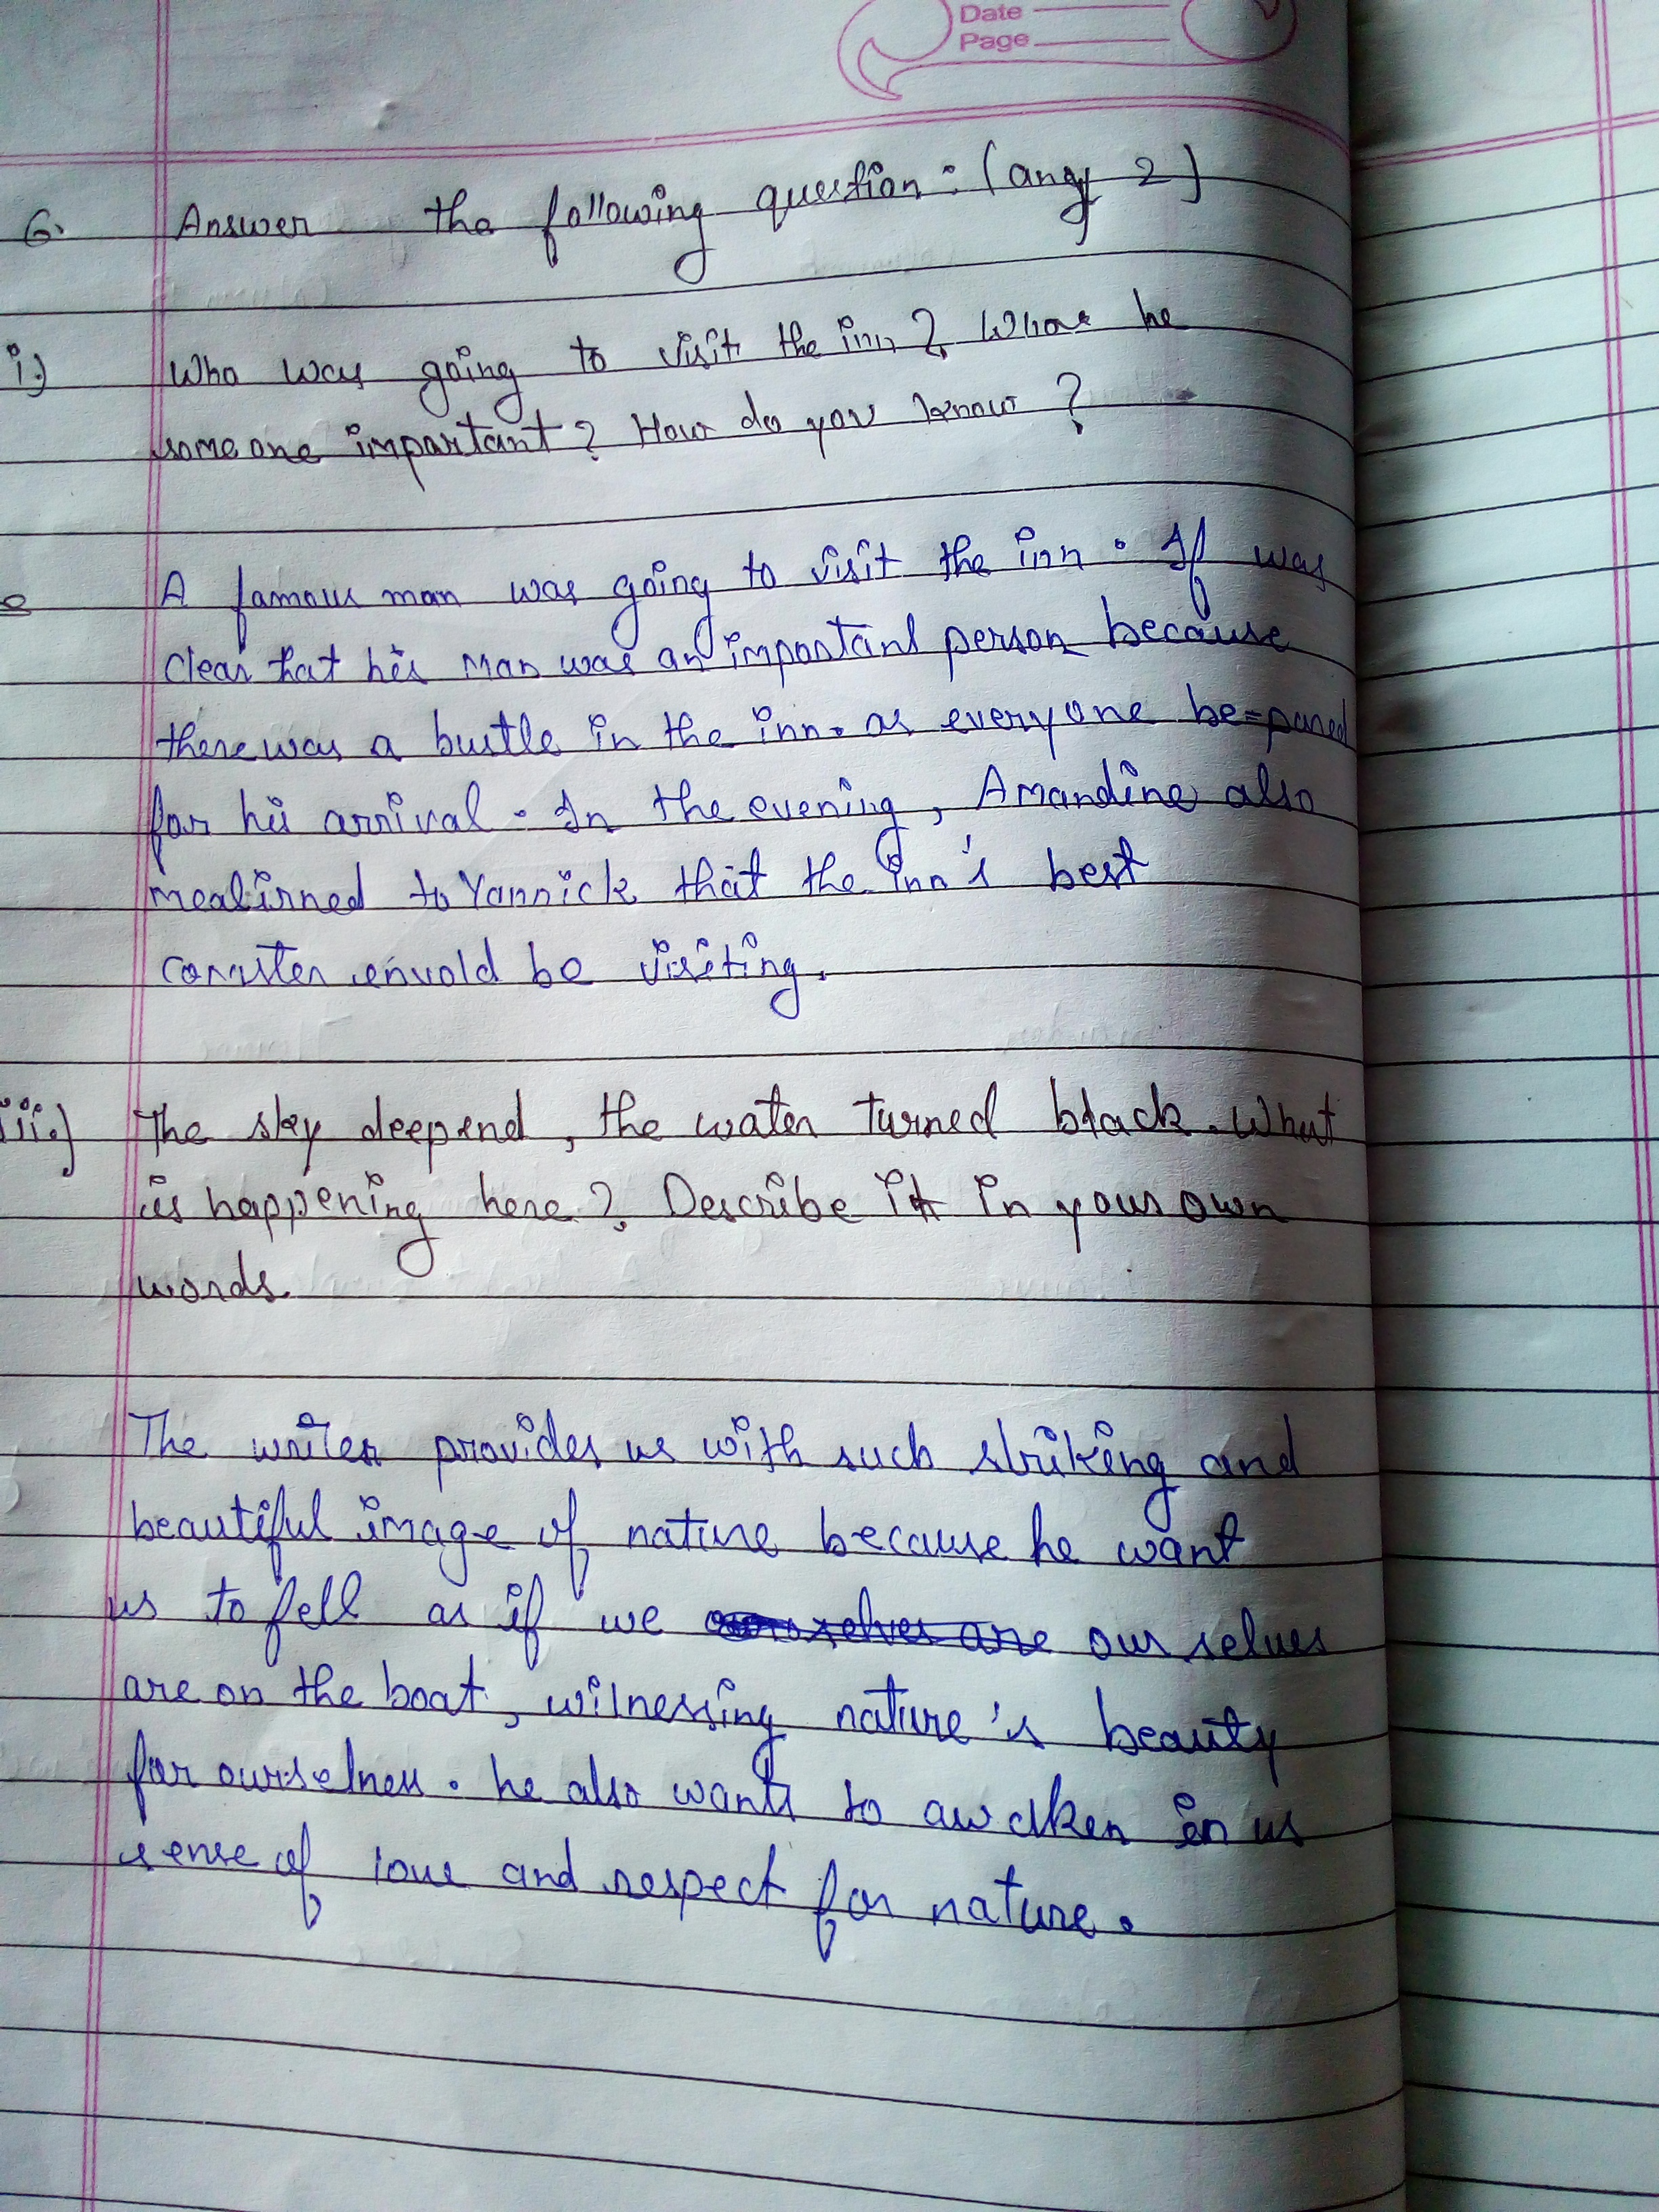 Date
Page
6. Answer the following question : (any 2)
i.) Who was going to visit the inn ? Whas he
someone important ? How do you know ?
A famous man was going to visit the inn . If was
clear that his man was an important person because
there was a bustle in the inn. as everyone be=pared
for his arrival . In the evening, Amandine also
to Yannick that the inn's best
be visiting.
iii.) The sky deepend, the water turned black. What
is happening here ? Describe it in your own
words
The writer provides us with such striking and
beautiful image of nature because he want
us to fell as if we ourselves are our selves
are on the boat, witnessing nature's beauty
for ourselnes . he also wants to awaken in us
sense of love and respect for nature .